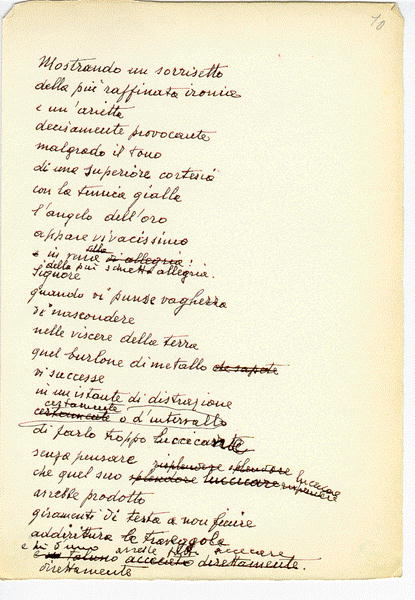 10
Mostrando un sorrisetto
della più raffinata ironia
e un'arietta
decisamente provocante
malgrado il tono
di una superiore cortesia
con la tunica gialla
l'angelo dell'oro
appare vivacissimo
e in vena alla di allegria!
della più schietta allegria.
Signore
quando vi punse vaghezza
di nascondere
nelle viscere della terra
quel burlone di metallo che sapete
vi successe
in un istante di distrazione
certamente
certamente o d'intervallo
di farlo troppo luccicante
senza pensare risplendere splendore luccicare
che quel suo splendore luccicare risplendere
avrebbe prodotto
giramenti di testa a non finire
addirittura le traveggole
e in d'uno avreste accecare
accecato direttamente.
direttamente